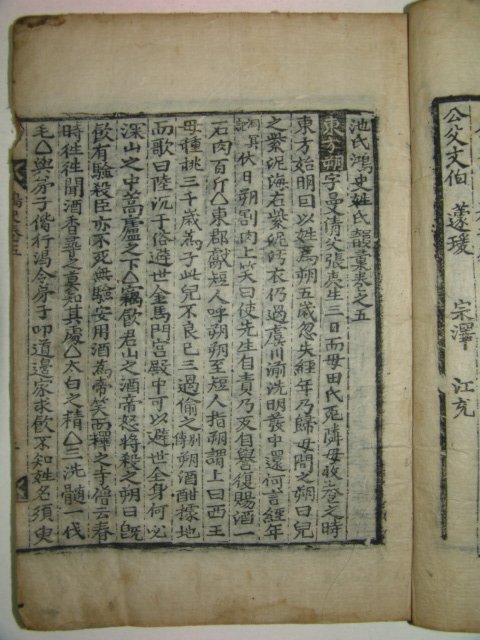 公父文伯 蘧瑗 宋澤 江充
池氏鴻史姓氏韻彙卷之五
東方朔字曼倩父張夷生三日而母田氏死隣母收養之時
東方始明因以姓焉朔五歲忽失經年乃歸母問之朔曰兒
之紫泥海有紫泥汚衣仍過虞川湔洗朝發中還何言經年
洞冥記伏日朔割肉上笑曰使先生自責乃反自譽復賜酒一
石肉百斤△東郡獻短人呼朔朔至短人指朔謂上曰西王
母種桃三千歲為子此兒不良已三過偷之別傳朔酒酣據地
而歌曰陸沉于俗避世金馬門宮殿中可以避世全身何必
深山之中蒿廬之下△竊飮君山之酒帝怒將殺之朔曰旣
飮有驗殺臣亦不死無驗安用酒為帝笑而釋之寺僧云春
時徃徃聞酒香尋之莫知其處△太白之精△三洗髓一代
毛△與弟子偕行渴令弟子叩道邊家求飮不知姓名須臾
鴻史卷五